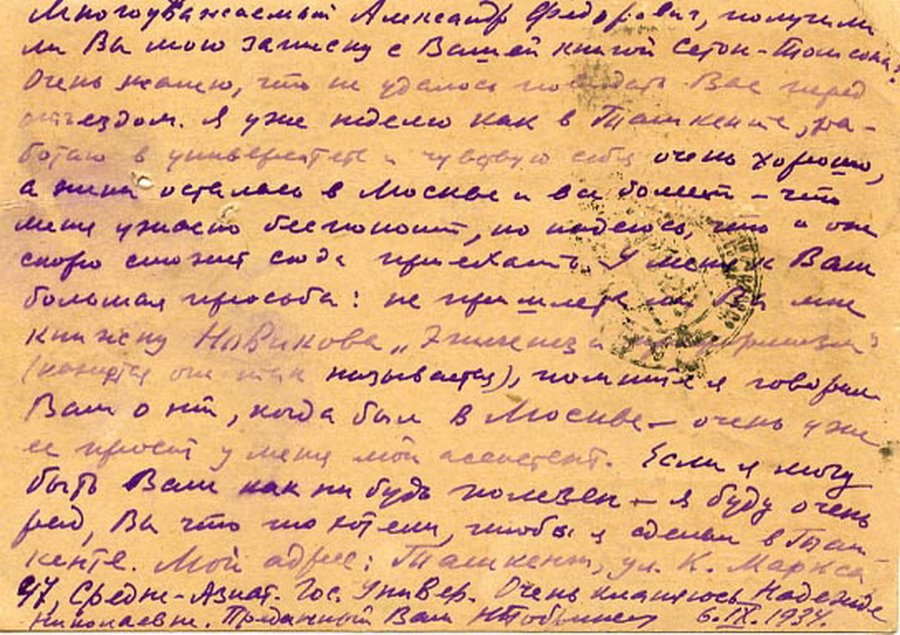 Многоуважаемый Александр Федорович, получили
ли Вы мою записку с Вашей книгой Сетон-Томсона?
Очень жалею, что не удалось повидать Вас перед
отъездом. Я уже неделю как в Ташкенте, ра-
ботаю в университете и чувствую себя очень хорошо,
а жена осталась в Москве и болеет – что
меня ужасно беспокоит, но надеюсь, что и он
скоро сможет сюда приехать. У меня к Вам
большая просьба: не пришлете ли Вы мне
книжку Новикова „
(кажется она так называется), помните я говорил
Вам о ней, когда был в Москве – очень уже
ее просит у меня мой ассистент. Если я могу
быть Вам как ни будь полезен – я буду очень
рад, Вы что то хотели, чтобы я сделал в Таш
кенте. Мой адрес: Ташкент, ул. К. Маркса
47, Средне-Азиат. Гос. Универ. Очень кланяюсь Надежде
Николаевне. Преданный Вам 6.IX.1934.